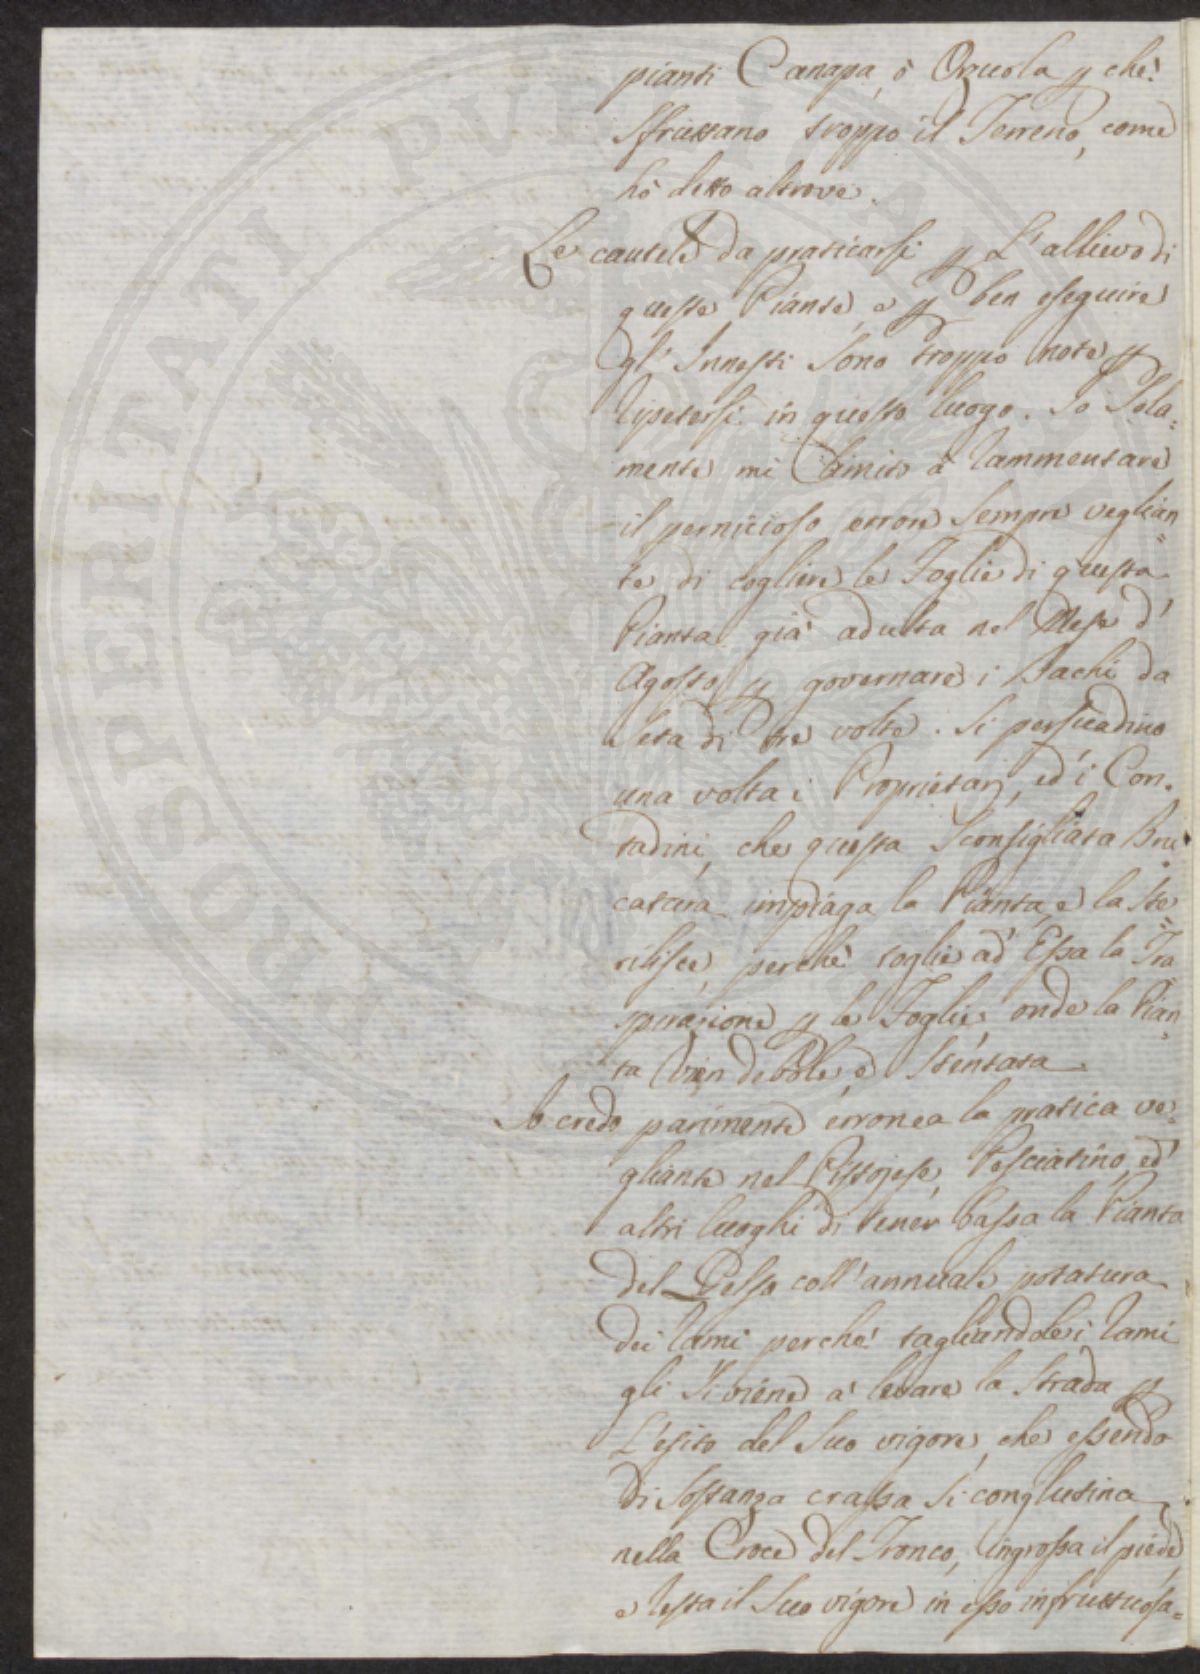 pianti Canapa, ò Orzuola p che
sfruttano troppo il Terreno, come
hò detto altrove.
Le cautele da praticarsi p L'allievo di
queste Piante, e p ben eseguire
gl'Innesti sono troppo note p
ripetersi in questo luogo. Io Sola=
mente mi limito à rammentare
il pernicioso errore sempre veglian=
te di cogliere le Foglie di questa
Pianta già adulta nel Mese d'
Agosto p governare i Bachi da
Seta di tre volte. Si persuadino
una volta i Proprietarj, ed i Con=
tadini, che questa sconsigliata Bru=
catura impiaga la Pianta, e la ste=
rilisce, perchè toglie ad Essa la Tra=
spirazione p le Foglie, onde la Pian=
ta vien debole, e stentata
Io credo parimente erronea la pratica ve=
gliante nel Pistojese, Pesciatino, ed
altri luoghi di tener bassa la Pianta
del Gelso coll'annuale potatura
dei rami perchè tagliandole i rami
gli si viene a levare la strada p
L'esito del suo vigore, che essendo
di sostanza crassa si conglutina
nella Croce del Tronco, ingrossa il piede,
e resta il suo vigore in esso infruttuosa=
PROSPERITATI PUBLICAE